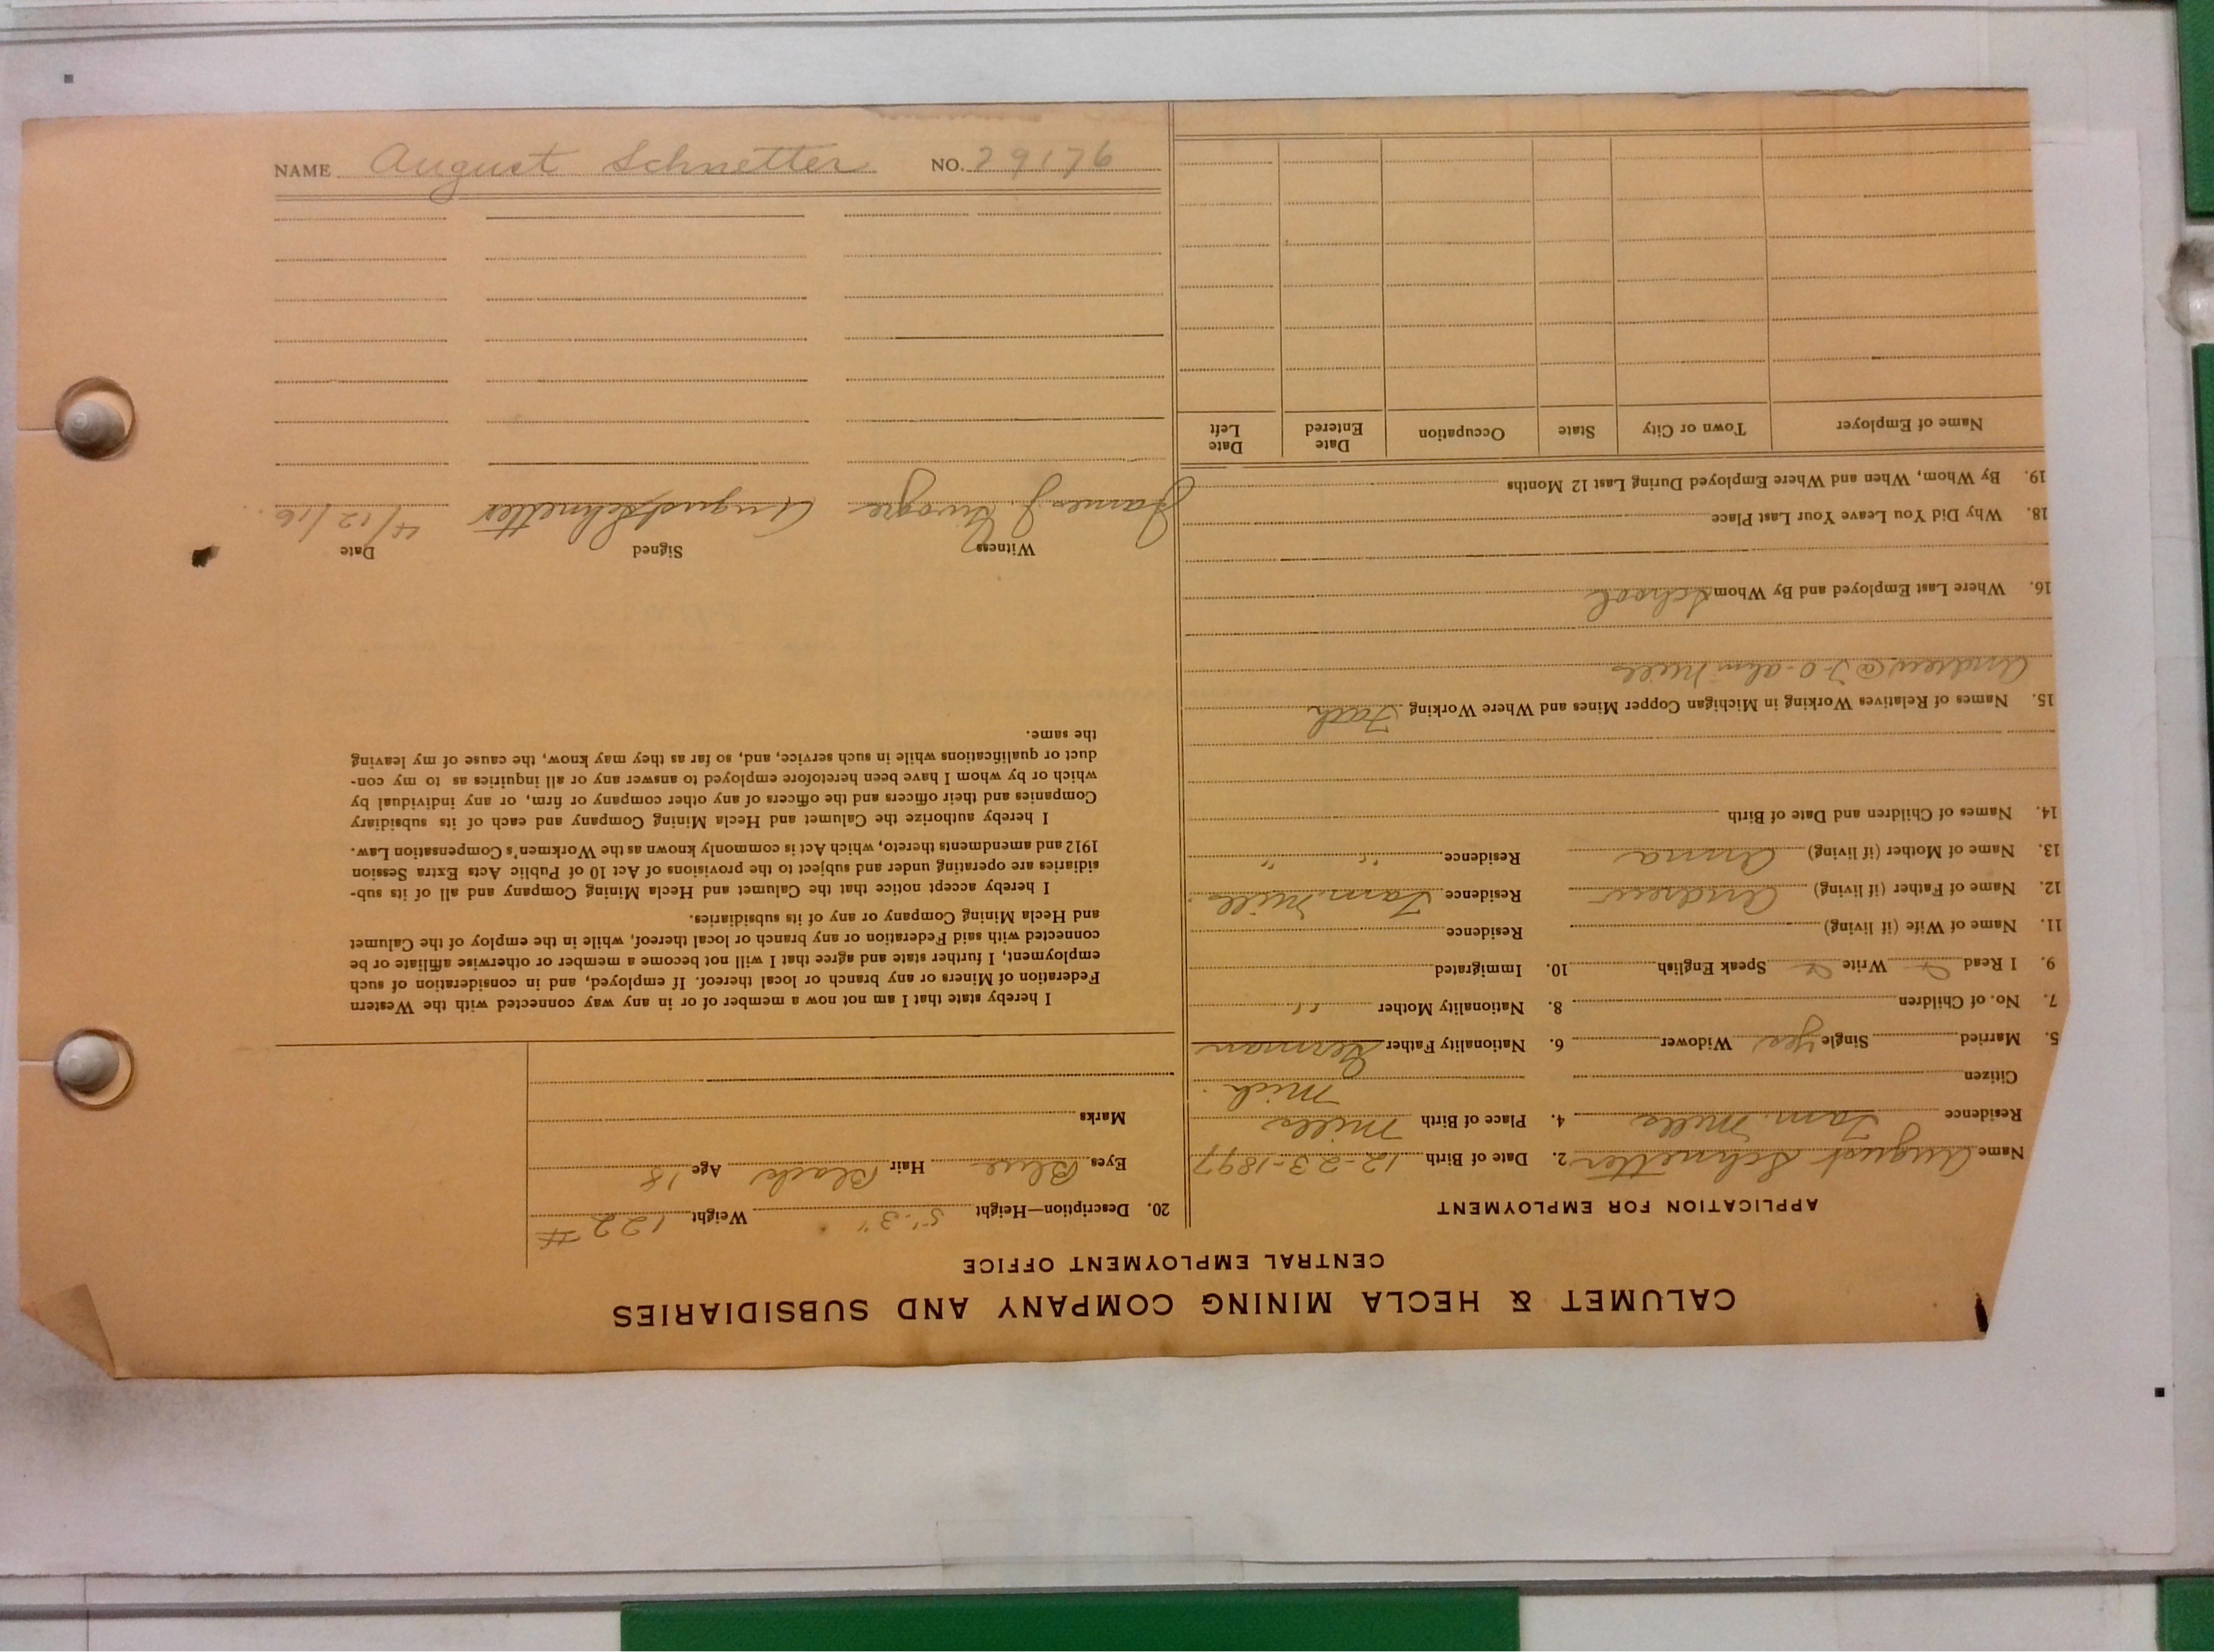 CALUMET & HECLA MINING COMPANY AND SUBSIDIARIES
CENTRAL EMPLOYMENT OFFICE
APPLICATION FOR EMPLOYMENT
Name August Schnetter 2. Date of Birth 12-23-1897
Residence Tam. Mills 4. Place of Birth Mills
Mich.
Citizen
5. Married Single Yes Widower 6. Nationality Father German
7. No. of Children 8. Nationality Mother "
9. I Read Write Speak English 10. Immigrated
11. Name of Wife (if living) Residence
12. Name of Father (if living) Andrew Residence Tam. Mills.
13. Name of Mother (if living) Anna Residence " "
14. Names of Children and Date of Birth
15. Names of Relatives Working in Michigan Copper Mines and Where Working Fath
Andrew @ Mills
16. Where Last Employed and By Whom School
18. Why Did You Leave Your Last Place
19. By Whom, When and Where Employed During Last 12 Months
Name of Employer Town or City State Occupation Date Entered Date Left
20. Description—Height 5'-3" Weight 122 #
Eyes Blue Hair Black Age 18
Marks
I hereby state that I am not now a member of or in any way connected with the Western
Federation of Miners or any branch or local thereof. If employed, and in consideration of such
employment, I further state and agree that I will not become a member or otherwise affiliate or be
connected with said Federation or any branch or local thereof, while in the employ of the Calumet
and Hecla Mining Company or any of its subsidiaries.
I hereby accept notice that the Calumet and Hecla Mining Company and all of its sub-
sidiaries are operating under and subject to the provisions of Act 10 of Public Acts Extra Session
1912 and amendments thereto, which Act is commonly known as the Workmen's Compensation Law.
I hereby authorize the Calumet and Hecla Mining Company and each of its subsidiary
Companies and their officers and the officers of any other company or firm, or any individual by
which or by whom I have been heretofore employed to answer any or all inquiries as to my con-
duct or qualifications while in such service, and, so far as they may know, the cause of my leaving
the same.
Witness Signed Date
James J. August Schnetter 4/12/16.
NAME August Schnetter NO. 29176